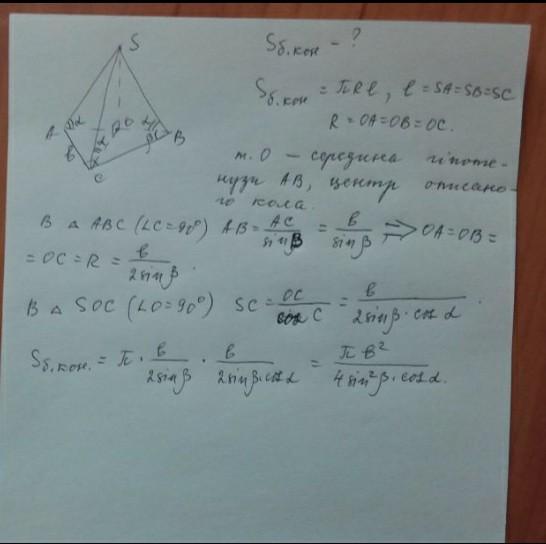 S
Sб.кон - ?
Sб.кон = πRl, l = SA = SB = SC
R = OA = OB = OC.
A α O B
в α β
C
т. О – середина гіпоте-
нузи АВ, центр описано-
го кола.
В △ ABC (∠C=90°) AB = AC/sinβ = в/sinβ, ⇒ OA=OB=
= OC = R = в/2sinβ.
В △ SOC (∠O=90°) SC = OC/cos C = в/2sinβ·cosα.
Sб.кон. = π · в/2sinβ · в/2sinβ·cosα = πв²/4sin²β·cosα.